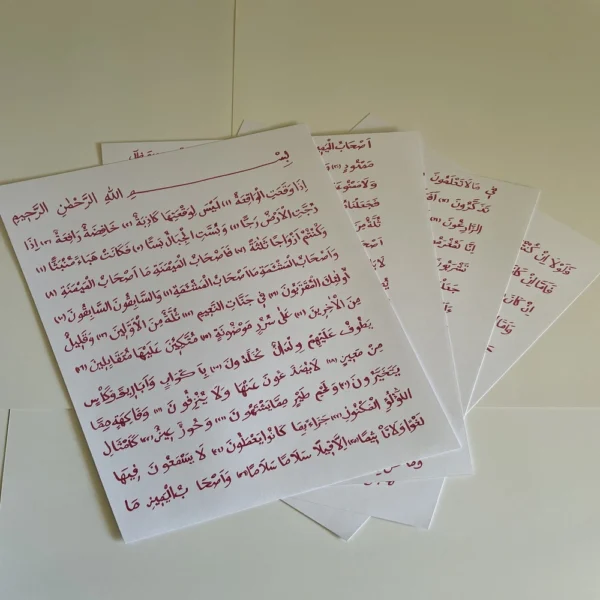 بِسْمِ اللهِ الرَّحْمٰنِ الرَّحِيمِ
إِذَا وَقَعَتِ الْوَاقِعَةُ (١) لَيْسَ لِوَقْعَتِهَا كَاذِبَةٌ (٢) خَافِضَةٌ رَافِعَةٌ (٣) إِذَا
رُجَّتِ الْأَرْضُ رَجًّا (٤) وَبُسَّتِ الْجِبَالُ بَسًّا (٥) فَكَانَتْ هَبَاءً مُنْبَثًّا (٦)
وَكُنْتُمْ أَزْوَاجًا ثَلَاثَةً (٧) فَأَصْحَابُ الْمَيْمَنَةِ مَا أَصْحَابُ الْمَيْمَنَةِ (٨)
وَأَصْحَابُ الْمَشْئَمَةِ مَا أَصْحَابُ الْمَشْئَمَةِ (٩) وَالسَّابِقُونَ السَّابِقُونَ (١٠)
أُولَئِكَ الْمُقَرَّبُونَ (١١) فِي جَنَّاتِ النَّعِيمِ (١٢) ثُلَّةٌ مِنَ الْأَوَّلِينَ (١٣) وَقَلِيلٌ
مِنَ الْآخِرِينَ (١٤) عَلَى سُرُرٍ مَوْضُونَةٍ (١٥) مُتَّكِئِينَ عَلَيْهَا مُتَقَابِلِينَ (١٦)
يَطُوفُ عَلَيْهِمْ وِلْدَانٌ مُخَلَّدُونَ (١٧) بِأَكْوَابٍ وَأَبَارِيقَ وَكَأْسٍ
مِنْ مَعِينٍ (١٨) لَا يُصَدَّعُونَ عَنْهَا وَلَا يُنْزِفُونَ (١٩) وَفَاكِهَةٍ مِمَّا
يَتَخَيَّرُونَ (٢٠) وَلَحْمِ طَيْرٍ مِمَّا يَشْتَهُونَ (٢١) وَحُورٌ عِينٌ (٢٢) كَأَمْثَالِ
اللُّؤْلُؤِ الْمَكْنُونِ (٢٣) جَزَاءً بِمَا كَانُوا يَعْمَلُونَ (٢٤) لَا يَسْمَعُونَ فِيهَا
لَغْوًا وَلَا تَأْثِيمًا (٢٥) إِلَّا قِيلًا سَلَامًا سَلَامًا (٢٦) وَأَصْحَابُ الْيَمِينِ مَا
أَصْحَابُ الْيَمِينِ
فِي مَا لَا تَعْلَمُونَ
تَذَكَّرُونَ
الزَّارِعُونَ